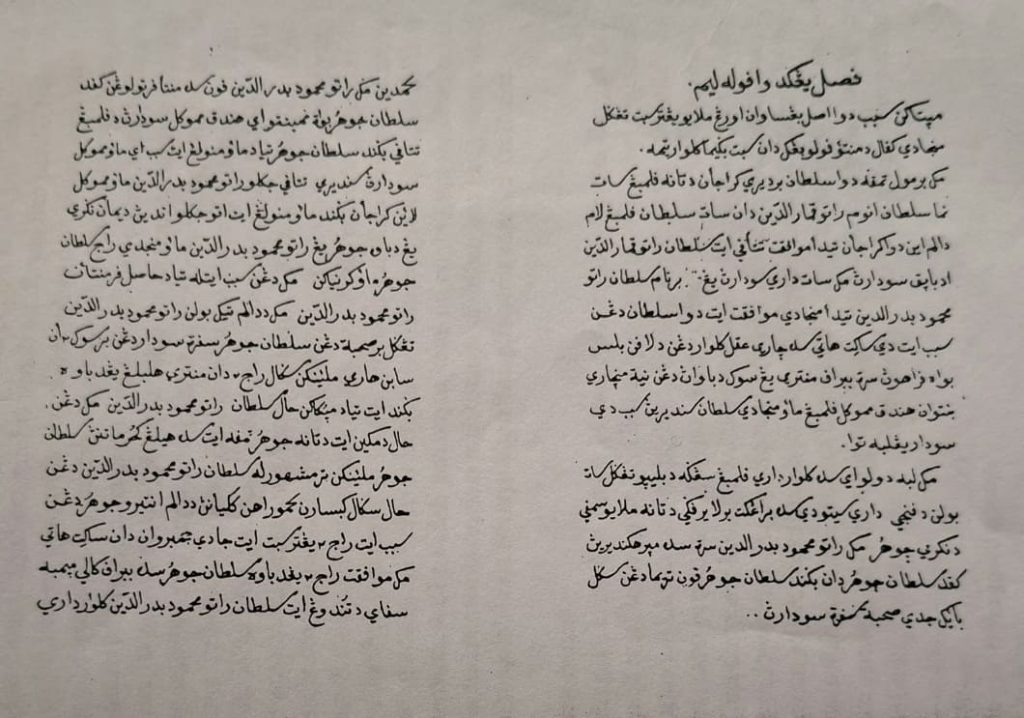 فصل يڠكدوا ڤوله ليم.
مپتاكن سبب دوا اصل بڠساوان اورڠ ملايو يڠترسبت تڠكل
منجادي كڤال دمنتوق ڤولو بڠك دان سبت بݢيمان كلوارڽ.
مك برمول تمڤه دوا سلطان برديري كراجأن دتانه ڤلمبڠ سات
نما سلطان انوم راتو قمار الدّين دان سات سلطان ڤلمبڠ لام
دالم اين دوا كراجأن تيدا موافقت تتاڤي ايت سلطان راتو قمار الدّين
اد باپق سودارڽ مك سات داري سودارڽ يڠ برنام سلطان راتو
محمود بدر الدين تيدا منجادي موافقت ايت دوا سلطان دڠن
سبب ايت دي ساكت هاتي سه چاري عقل كلوار دڠن دلاڤن بلس
بواه ڤراهوڽ سرة ببراڤ منتري يڠ سوك دباواڽ دڠن نية منچاري
بنتوان هندق مموكل ڤلمبڠ ماو منجادي سلطان سنديريڽ سبب دي
سودار يڠلبه توا.
مك لبه دولو اي سه كلوار داري ڤلمبڠ سڠكه دبليپو تڠكل سات
بولن دڤنجي داري سيتو دي سه براڠكت برلاير ڤركي دتانه ملايو سمڤي
دنكري جوهر مك راتو محمود بدر الدين سرة سه مپرهكنديريڽ
كڤد سلطان جوهر دان بكند سلطان جوهر ڤون تريما دڠن سكل
بايك جدي صحبة سڤرة سودارڽ ..
محمدين مك راتو محمود بدر الدّين ڤون سه منتأ ڤرتولوڠن كڤد
سلطان جوهر بوله نمبنتو اي هندق مموكل سودارڽ دڤلمبڠ
تتاڤي بكند سلطان جوهر تياد ماو منولڠ ايت سباي ماو مموكل
سودارڽ سنديري تتاڤي جكلو راتو محمود بدر الدّين ماو مموكل
لاين كراجأن بكند ماو منولڠ ايت اتو جكلو اندڽ ديمان نكري
يڠ دباوه جوهر يڠ راتو محمود بدر الدّين ماو منجدي راج سلطان
جوهر ماو كرنياكن مك دڠن سبب ايتله تياد حاصل ڤرمنتأن
راتو محمود بدر الدّين مك ددالم تيكل بولن راتو محمود بدر الدّين
تڠكل برصحبة دڠن سلطان جوهر سڤرة سودار دڠن برسوك٢ أن
سابن هاري ملينكن سكال راج٢ دان منتري هلبلڠ يڠدباوه
بكند ايت تياد مپتاكن حال سلطان راتو محمود بدر الدّين مك دڠن
حال دمكين ايت دتانه جوهر تمڤه ايت سه هيلڠ كحرماتنڽ سلطان
جوهر ملينكن ترمشهورله سلطان راتو محمود بدر الدّين دڠن
حال سكال كبسارن كموراهن كلياءن ددالم انتيرو جوهر دڠن
سبب ايت راج٢ يڠترسبت ايت جادي چمبروان دان ساكت هاتي
مك موافقت راج٢ يڠدباوه سلطان جوهر سه ببراڤ كالي مپمبه
سڤاي دتندوڠ ايت سلطان راتو محمود بدر الدّين كلوار داري